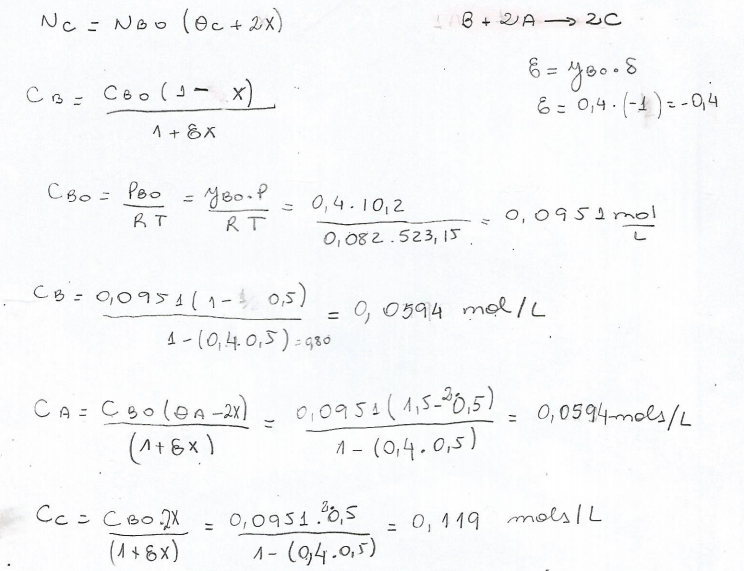 NC = NBO (θC + 2X)
B + 2A → 2C
ε = yBO · δ
ε = 0,4 · (-1) = -0,4
CB = CBO (1 - X) / 1 + εX
CBO = PBO / RT = yBO · P / RT = 0,4 · 10,2 / 0,082 . 523,15 = 0,0951 mol / L
CB = 0,0951 (1 - 0,5) / 1 - (0,4 . 0,5) = 0,80 = 0,0594 mol/L
CA = CBO (θA - 2X) / (1 + εX) = 0,0951 (1,5 - 2·0,5) / 1 - (0,4 . 0,5) = 0,0594 mols/L
CC = CBO · 2X / (1 + εX) = 0,0951 · 2·0,5 / 1 - (0,4 . 0,5) = 0,119 mols/L